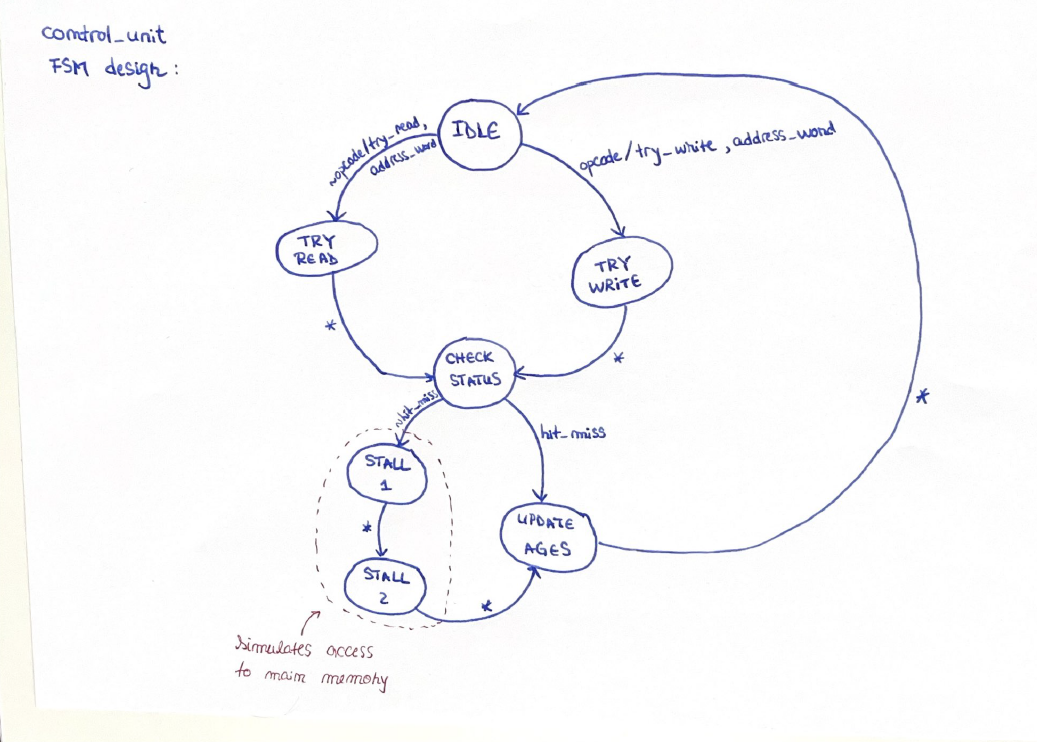 control_unit
FSM design:
IDLE
~opcode/try_read,
address_word
opcode/try_write, address_word
TRY
READ
TRY
WRITE
*
*
CHECK
STATUS
~hit_miss
hit_miss
*
STALL
1
*
UPDATE
AGES
STALL
2
*
simulates access
to main memory